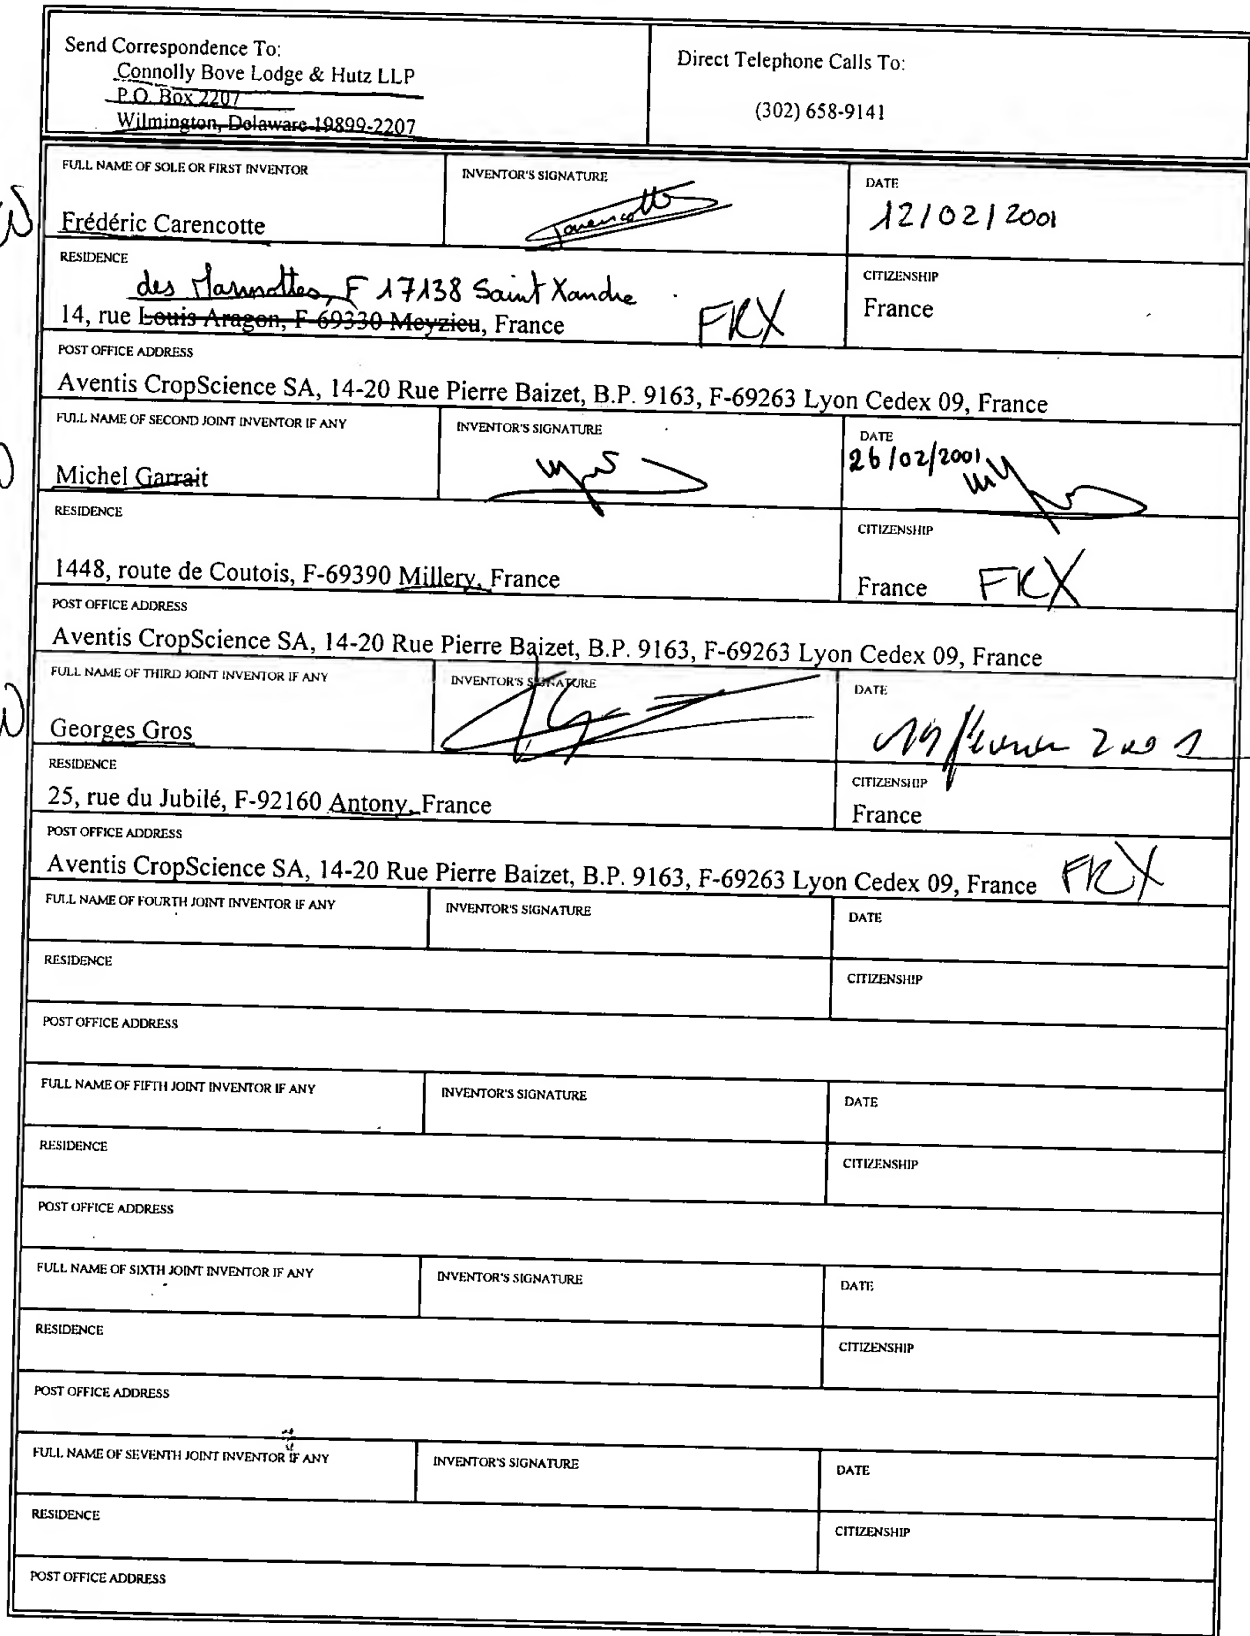 Send Correspondence To:
Connolly Bove Lodge & Hutz LLP
P.O. Box 2207
Wilmington, Delaware 19899-2207
Direct Telephone Calls To:
(302) 658-9141
FULL NAME OF SOLE OR FIRST INVENTOR
Frédéric Carencotte
INVENTOR'S SIGNATURE
Carencotte
DATE
12/02/2001
RESIDENCE
des Marmottes, F 17138 Saint Xandre
14, rue Louis Aragon, F-69330 Meyzieu, France
FRX
CITIZENSHIP
France
POST OFFICE ADDRESS
Aventis CropScience SA, 14-20 Rue Pierre Baizet, B.P. 9163, F-69263 Lyon Cedex 09, France
FULL NAME OF SECOND JOINT INVENTOR IF ANY
Michel Garrait
INVENTOR'S SIGNATURE
DATE
26/02/2001
RESIDENCE
1448, route de Coutois, F-69390 Millery, France
CITIZENSHIP
France FRX
POST OFFICE ADDRESS
Aventis CropScience SA, 14-20 Rue Pierre Baizet, B.P. 9163, F-69263 Lyon Cedex 09, France
FULL NAME OF THIRD JOINT INVENTOR IF ANY
Georges Gros
INVENTOR'S SIGNATURE
DATE
19 février 2001
RESIDENCE
25, rue du Jubilé, F-92160 Antony, France
CITIZENSHIP
France
POST OFFICE ADDRESS
Aventis CropScience SA, 14-20 Rue Pierre Baizet, B.P. 9163, F-69263 Lyon Cedex 09, France FRX
FULL NAME OF FOURTH JOINT INVENTOR IF ANY
INVENTOR'S SIGNATURE
DATE
RESIDENCE
CITIZENSHIP
POST OFFICE ADDRESS
FULL NAME OF FIFTH JOINT INVENTOR IF ANY
INVENTOR'S SIGNATURE
DATE
RESIDENCE
CITIZENSHIP
POST OFFICE ADDRESS
FULL NAME OF SIXTH JOINT INVENTOR IF ANY
INVENTOR'S SIGNATURE
DATE
RESIDENCE
CITIZENSHIP
POST OFFICE ADDRESS
FULL NAME OF SEVENTH JOINT INVENTOR IF ANY
INVENTOR'S SIGNATURE
DATE
RESIDENCE
CITIZENSHIP
POST OFFICE ADDRESS